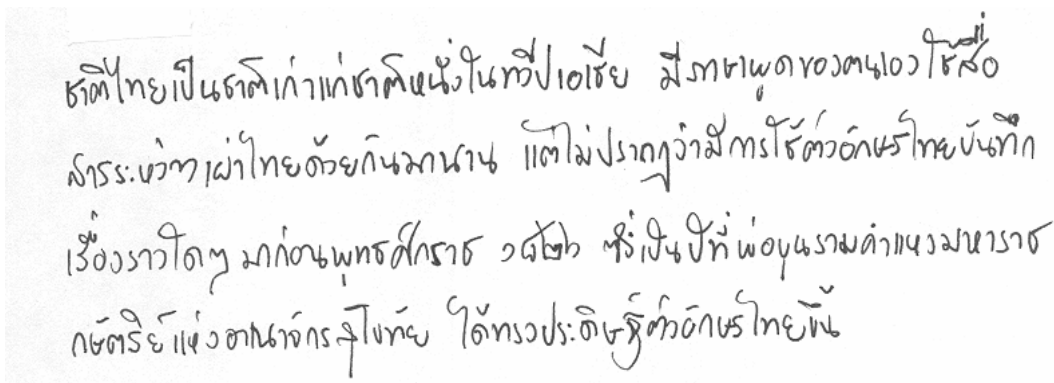 ชาติไทยเป็นชาติเก่าแก่ชาติหนึ่งในทวีปเอเชีย มีภาษาพูดของตนเองใช้สื่อ
สารระหว่างเผ่าไทยด้วยกันมานาน แต่ไม่ปรากฏว่ามีการใช้ตัวอักษรไทยบันทึก
เรื่องราวใดๆ มาก่อนพุทธศักราช ๑๘๒๖ ซึ่งเป็นปีที่พ่อขุนรามคำแหงมหาราช
กษัตริย์แห่งอาณาจักรสุโขทัย ได้ทรงประดิษฐ์ตัวอักษรไทยขึ้น